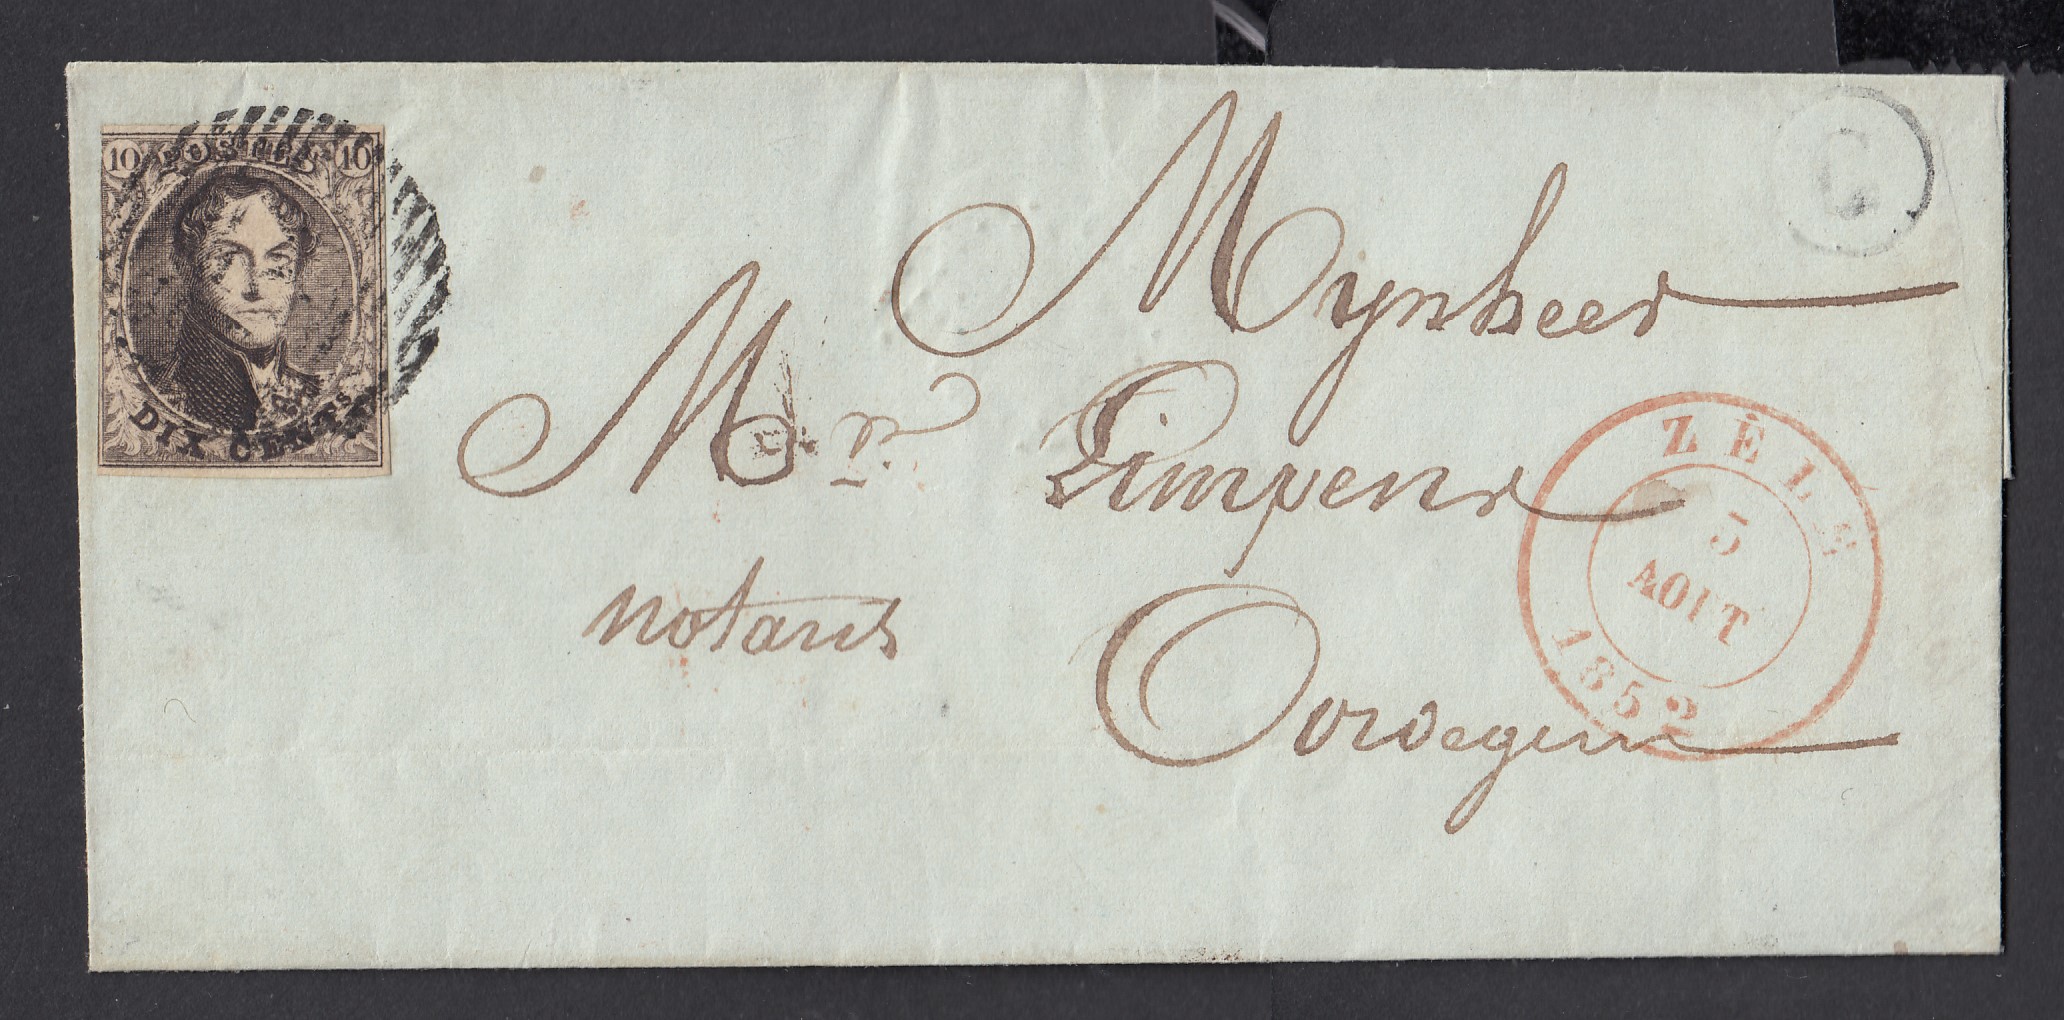 10 POSTES 10
DIX CENTS
G
Mynheer
Mr. Limpens
notaris
Oordegem
ZÈLE
5
AOUT
1852